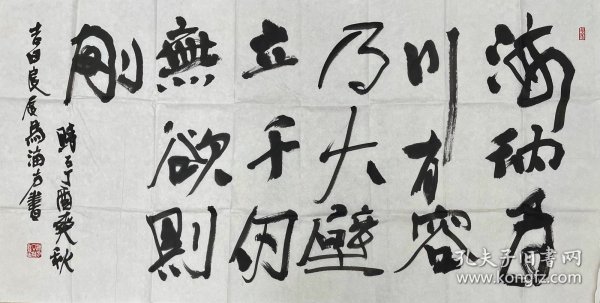 海納百
川有容
乃大壁
立千仞
無欲則
剛
時在丁酉奕秋
吉日良辰馬海方書
孔夫子旧书网
www.kongfz.com